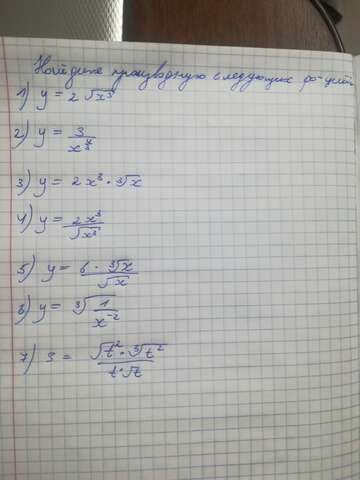 Найдите производную следующих ф-ций
1) y = 2√x³
2) y = 3/x^
3) y = 2x³ · ³√x
4) y = 2x³/√x³
5) y = 6 · ³√x/√x
6) y = ³√1/x⁻²
7) S = √t² · ³√t²/t·√t